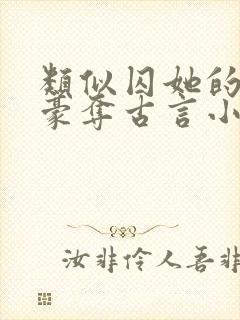 類似囚她的
豪奪古言小
汝非伶人吾非